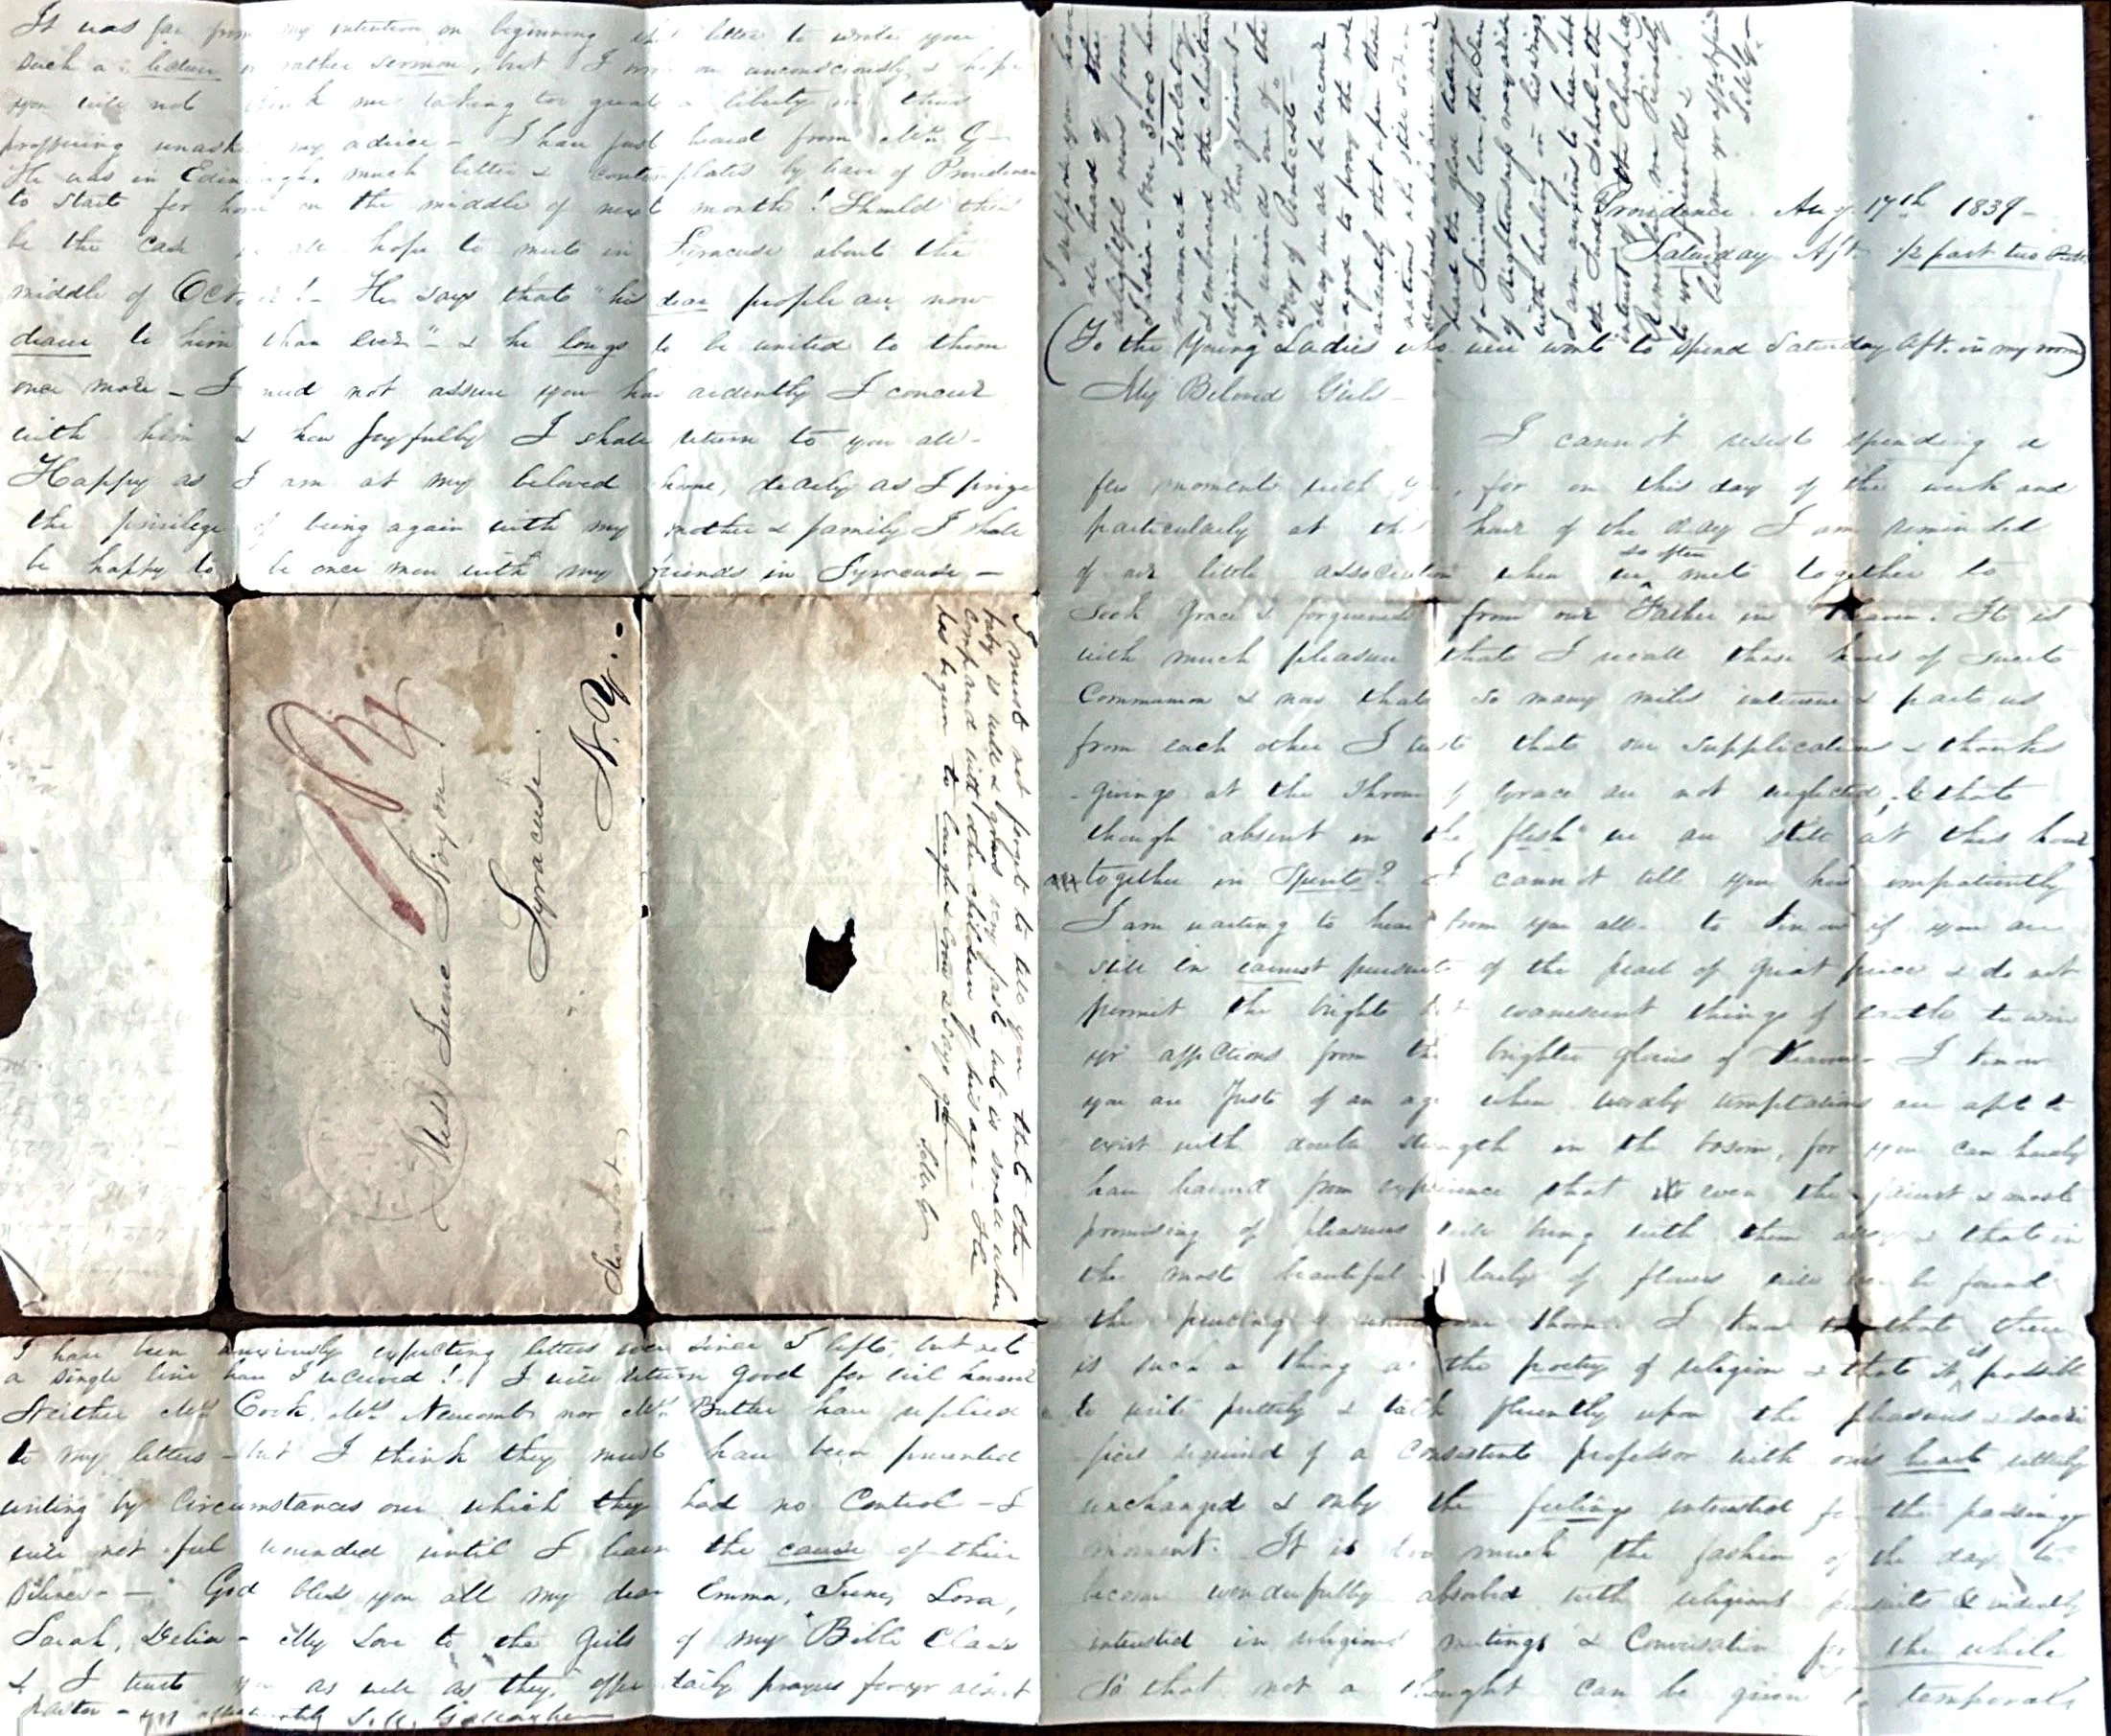 Providence Aug. 17th 1839 -
Saturday Aft. 1/2 past two
(To the Young Ladies who were wont to spend Saturday Aft. in my room)
My Beloved Girls -
I cannot resist spending a
few moments with you, for on this day of the week and
particularly at this hour of the day I am reminded
of our little association when we so often met together to
seek Grace & forgiveness from our Father in Heaven. It is
with much pleasure that I recall those hours of sweet
Communion & now that so many miles intervene & part us
from each other I trust that our supplications & thanks
-givings at the Throne of Grace are not neglected, & that
though "absent in the flesh" we are still at this hour
together in Spirit? I cannot tell you how impatiently
I am waiting to hear from you all - to know if you are
still in earnest pursuit of the pearl of great price & do not
permit the bright but evanescent things of earth to win
yr affections from the brighter glories of Heaven - I know
you are just of an age when worldly temptations are apt to
exist with double strength in the bosom, for you can hardly
have learned from experience that even the fairest & most
promising of pleasures will bring with them & that in
the most beautiful of flowers will be found
the piercing of some one thorn. I know too that there
is such a thing as the poetry of religion & that it is possible
to write prettily & talk fluently upon the pleasures & sacri
fices required of a consistent professor with one's heart utterly
unchanged & only the feelings interested for the passing
moment. It is too much the fashion of the day to
become wonderfully absorbed with religious pursuits & evidently
interested in religious meetings & Conversation for the while
So that not a thought can be given to temporals
I suppose you have
all heard of the
delightful news from
India - Over 3000 have
renounced Idolatry
& embraced the christian
religion - How glorious! -
it reminds one of the
"Day of Pentecost" -
may we all be encour
aged to pray the more
ardently that upon those
nations who still sit in
darkness
heard the glad tidings
for Sinners
of Righteousness may arise
with healing in his wings
I am anxious to hear abt
the Sunday School & the
interest of the Church
Remember me kindly
to yr friends &
believe me yr affectionate
It was far from my intention on beginning this letter to write you
such a lecture or rather sermon, but I ran on unconsciously & hope
you will not think me taking too great a liberty in thus
proffering unasked my advice - I have just heard from Mr. G -
He was in Edinburgh, much better & contemplates by leave of Providence
to start for home on the middle of next month! Should this
be the case we all hope to meet in Syracuse about the
middle of October! - He says that "his dear people are now
dearer to him than ever" - & he longs to be united to them
once more - I need not assure you how ardently I concur
with him & how joyfully I shall return to you all -
Happy as I am at my beloved home, dearly as I prize
the privilege of being again with my mother & family I shall
be happy to be once more with my friends in Syracuse -
I must not forget to tell you that the
baby is well & grows very fast but is small when
compared with other children of his age - He
has begun to laugh & crow & says goo
Miss Irene Dixon
Syracuse.
N.Y.
I have been anxiously expecting letters ever since I left, but not
a single line have I received! I will return good for evil however
Neither Mrs. Cook, Mrs. Newcomb nor Mrs. Butler have replied
to my letters - but I think they must have been prevented
writing by Circumstances over which they had no Control - I
will not feel wounded until I learn the cause of their
silence - God bless you all my dear Emma, Irene, Lora,
Sarah, Delia - My Love to the Girls of my Bible Class
& I trust you as well as they, offer daily prayers for yr absent
pastor - yrs affectionately